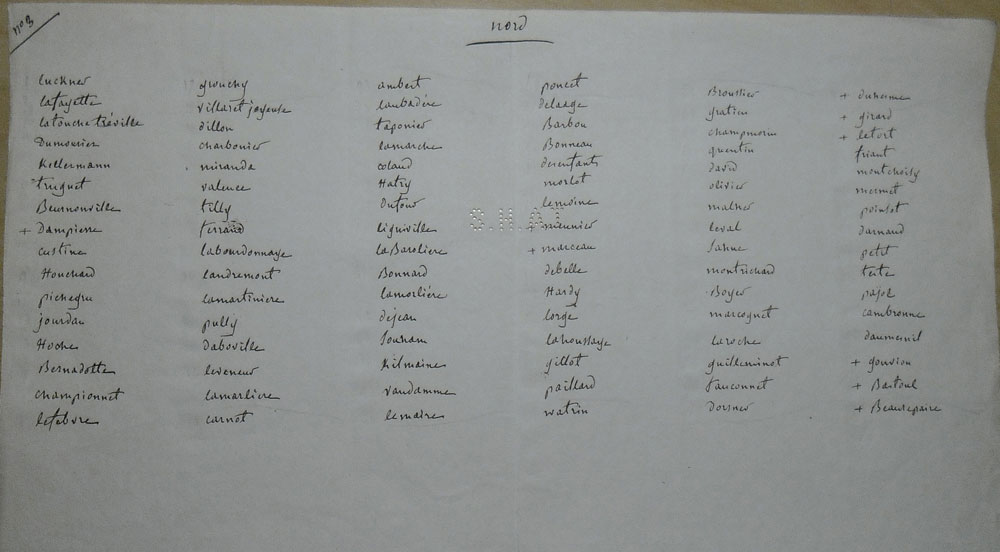 no 3
nord
luckner
lafayette
latouche tréville
Dumourier
Kellermann
truguet
Beurnonville
+ Dampierre
custine
Houchard
pichegru
jourdan
Hoche
Bernadotte
championnet
lefebvre
grouchy
villaret joyeuse
dillon
charbonier
miranda
valence
tilly
ferrand
labourdonnaye
landremont
lamartiniere
pully
daboville
leveneur
lamarliere
carnot
ambert
laubadére
taponier
lamarche
colaud
Hatry
Dufour
ligniville
la Baroliere
Bonnard
lamorliére
dejean
Souham
Kilmaine
vandamme
lemaire
poncet
delaage
Barbou
Bonneau
desenfants
morlot
lemoine
S.H.A.T
+ meunier
+ marceau
debelle
Hardy
lorge
lahoussaye
gillot
paillard
watrin
Broussier
gratien
champmorin
quentin
david
olivier
malher
leval
Jahne
montrichard
Boyer
marcognet
laroche
guilleminot
fauconnet
Dorsner
+ duhesme
+ girard
+ letort
friant
montchoisy
mermet
poinsot
darnaud
petit
teste
pajol
cambronne
daumesnil
+ gouvion
+ Bastoul
+ Beaurepaire